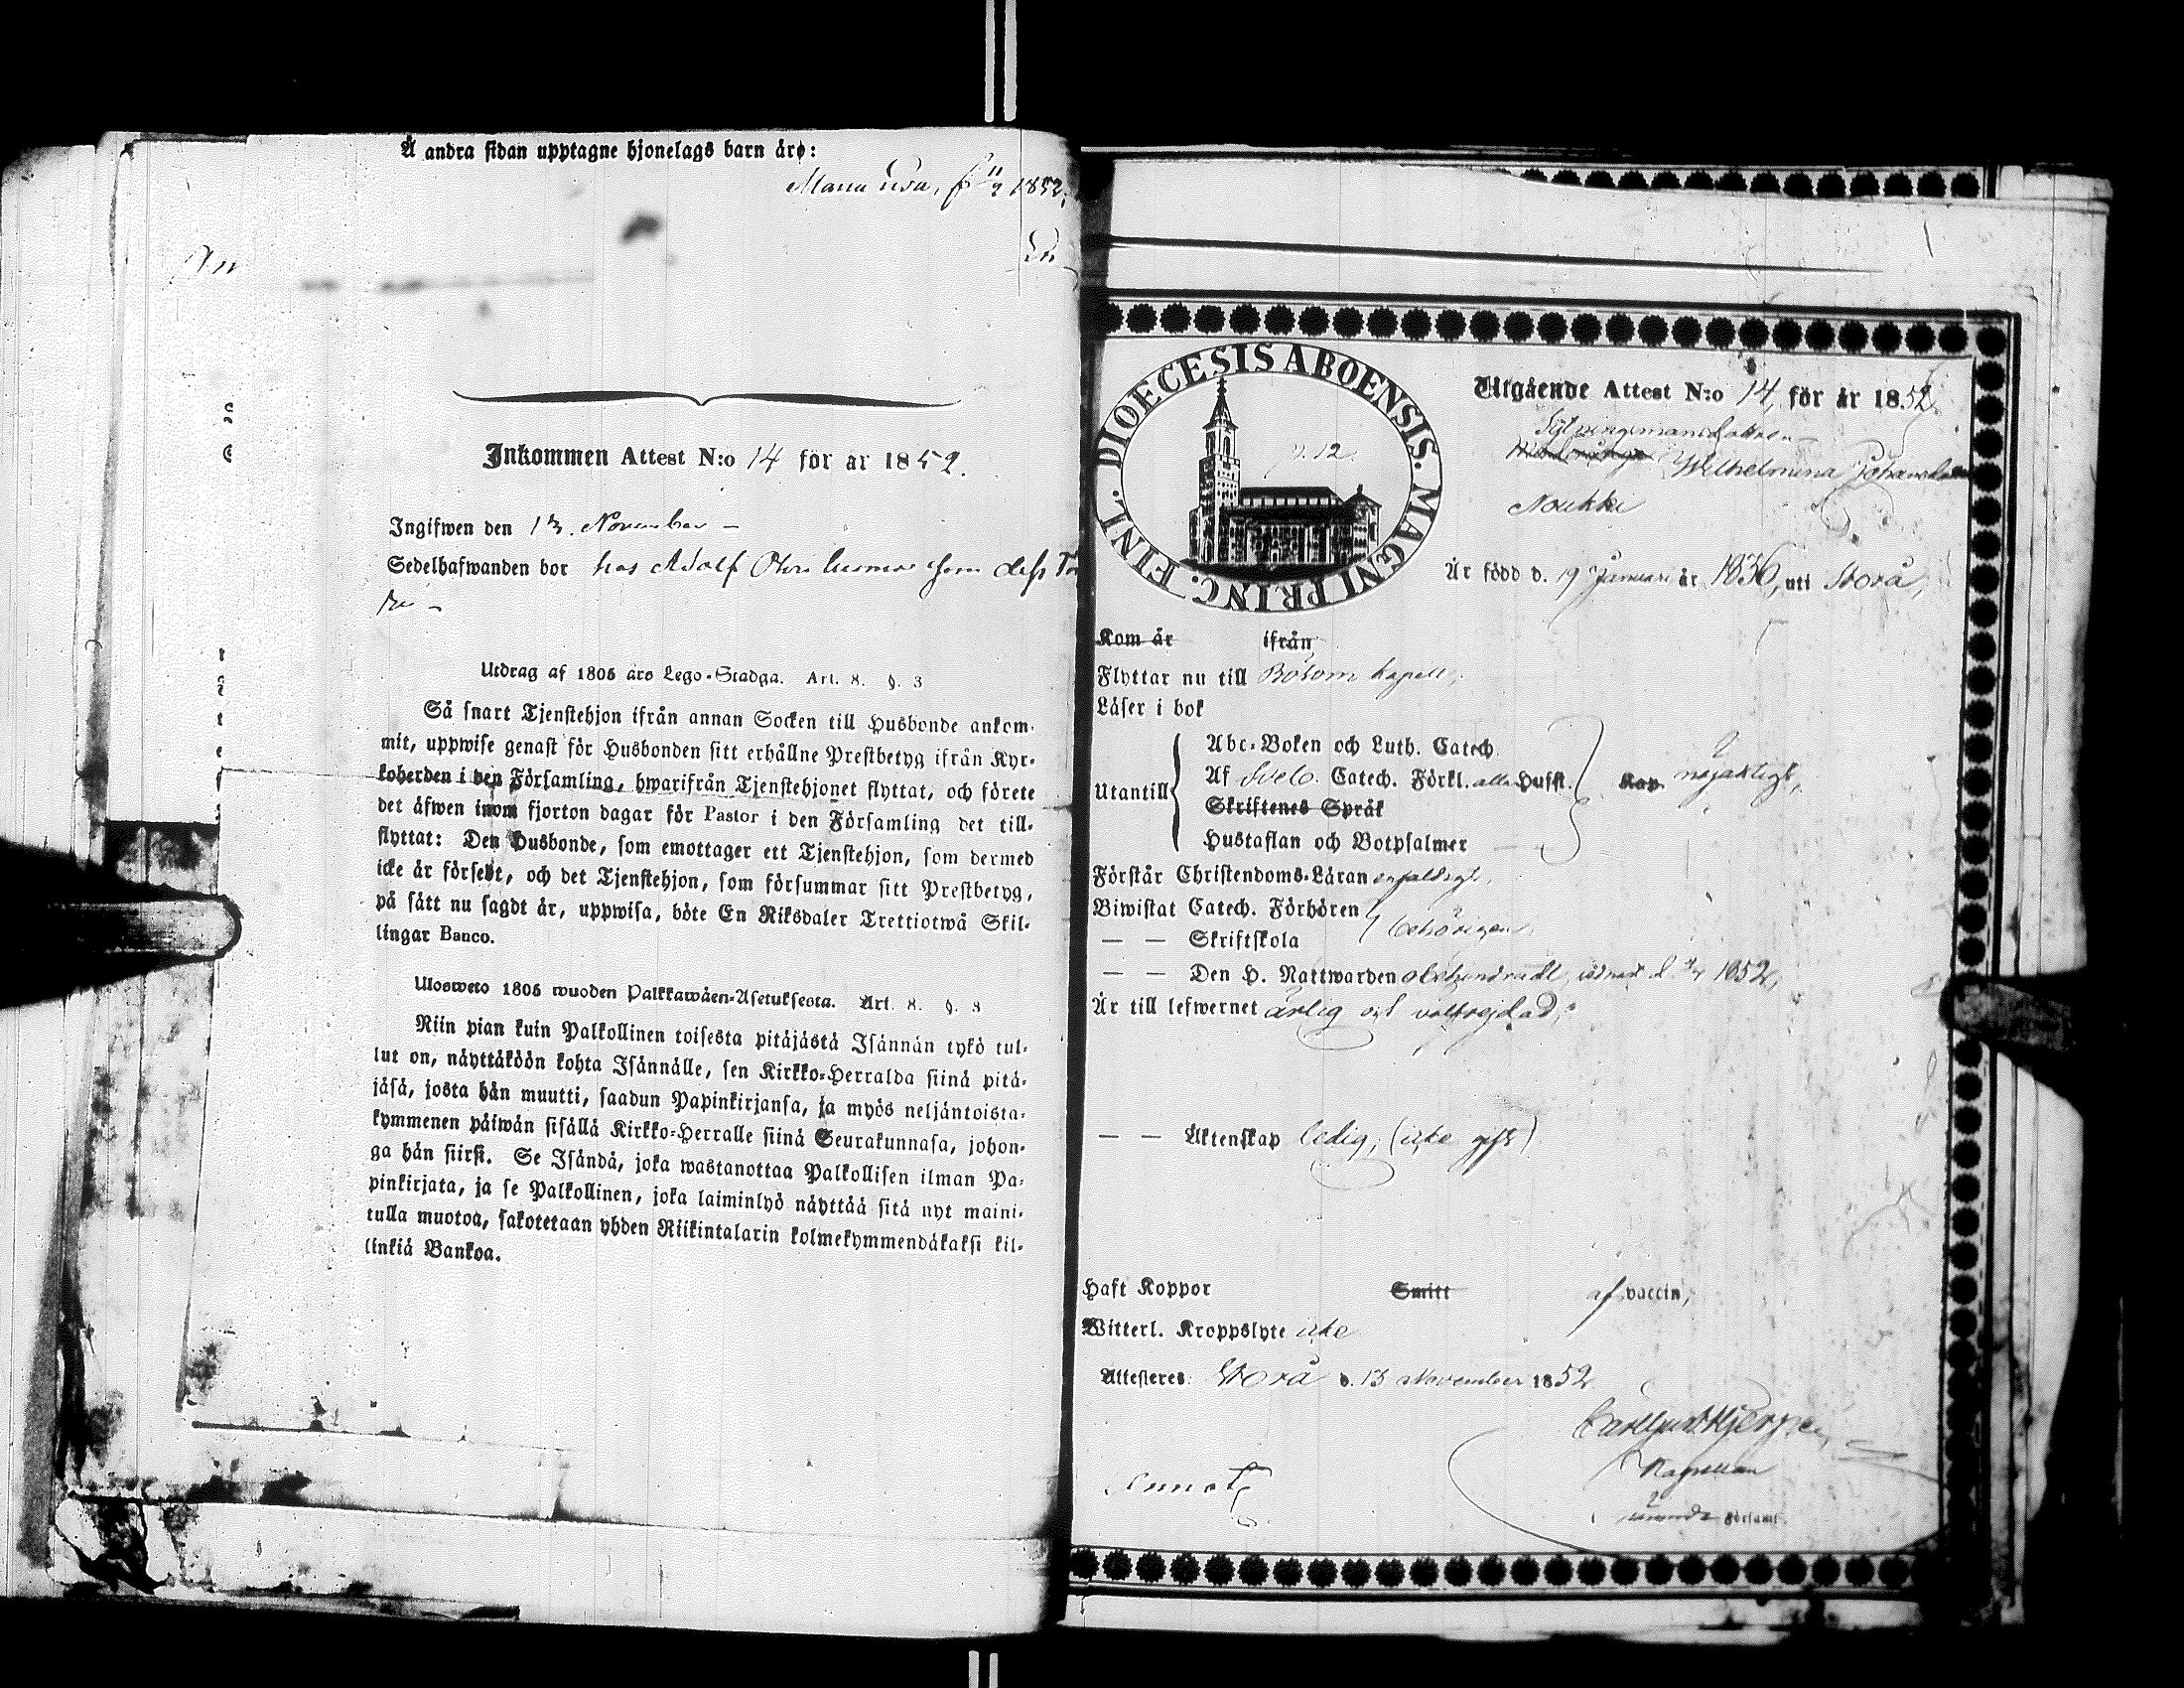 Å andra sidan upptagne hjonelags barn äro:
Maria Lisa, f. 11/9 1852,
Inkommen Attest N:o 14 för år 1852.
Ingifwen den 13. November –
Sedelhafwanden bor hos Adolf
Utdrag af 1805 års Lego-Stadga. Art. 8. §. 3
Så snart Tjenstehjon ifrån annan Socken till Husbonde ankom-
mit, uppwise genast för Husbonden sitt erhållne Prestbetyg ifrån Kyr-
koherden i den Församling, hwarifrån Tjenstehjonet flyttat, och förete
det äfwen inom fjorton dagar för Pastor i den Församling det till-
flyttat: Den Husbonde, som emottager ett Tjenstehjon, som dermed
icke är försedt, och det Tjenstehjon, som försummar sitt Prestbetyg,
på sätt nu sagdt är, uppwisa, böte En Riksdaler Trettiotwå Skil-
lingar Banco.
Ulosweto 1805 wuoden Palkkawäen-Asetuksesta. Art. 8. §. 3
Niin pian kuin Palkollinen toisesta pitäjästä Isännän tykö tul-
lut on, näyttäköön kohta Isännälle, sen Kirkko-Herralda siinä pitä-
jäsä, josta hän muutti, saadun Papinkirjansa, ja myös neljäntoista-
kymmenen päiwän sisällä Kirkko-Herralle siinä Seurakunnasa, johon-
ga hän siirsi. Se Isändä, joka wastanottaa Palkollisen ilman Pa-
pinkirjata, ja se Palkollinen, joka laiminlyö näyttää sitä nyt maini-
tulla muotoa, sakotetaan yhden Riikintalarin kolmekymmendäkaksi kil-
linkiä Bankoa.
DIOECESIS ABOENSIS. MAGNI PRINC. FINL.
p. 12.
Utgående Attest N:o 14, för år 1852
Wilhelmina
Noukki
Är född d. 19 Januari år 1836, uti Storå,
Kom år ifrån
Flyttar nu till Bötom kapell,
Läser i bok
Utantill
Abc-Boken och Luth. Catech.
Af Sveb. Catech. Förkl. alla Hufst.
Kap. nöjaktigt,
Skriftenes Språk
Hustaflan och Botpsalmer
Förstår Christendoms-Läran enfaldigt,
Biwistat Catech. Förhören
— — Skriftskola
behörigen,
— — Den H. Nattwarden obehindradt, 1852,
Är till lefwernet ärlig och välfrejdad;
— — Äktenskap ledig, (icke gift)
Haft Koppor Smitt af vaccin,
Witterl. Kroppslyte icke
Attesteras: Storå d. 13 November 1852
Kapellan
Församl.
Annot